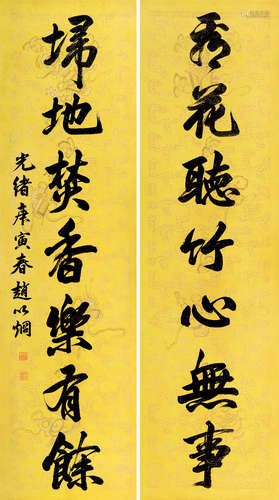 看花聽竹心無事
埽地焚香樂有餘
光緒庚寅春趙以炯